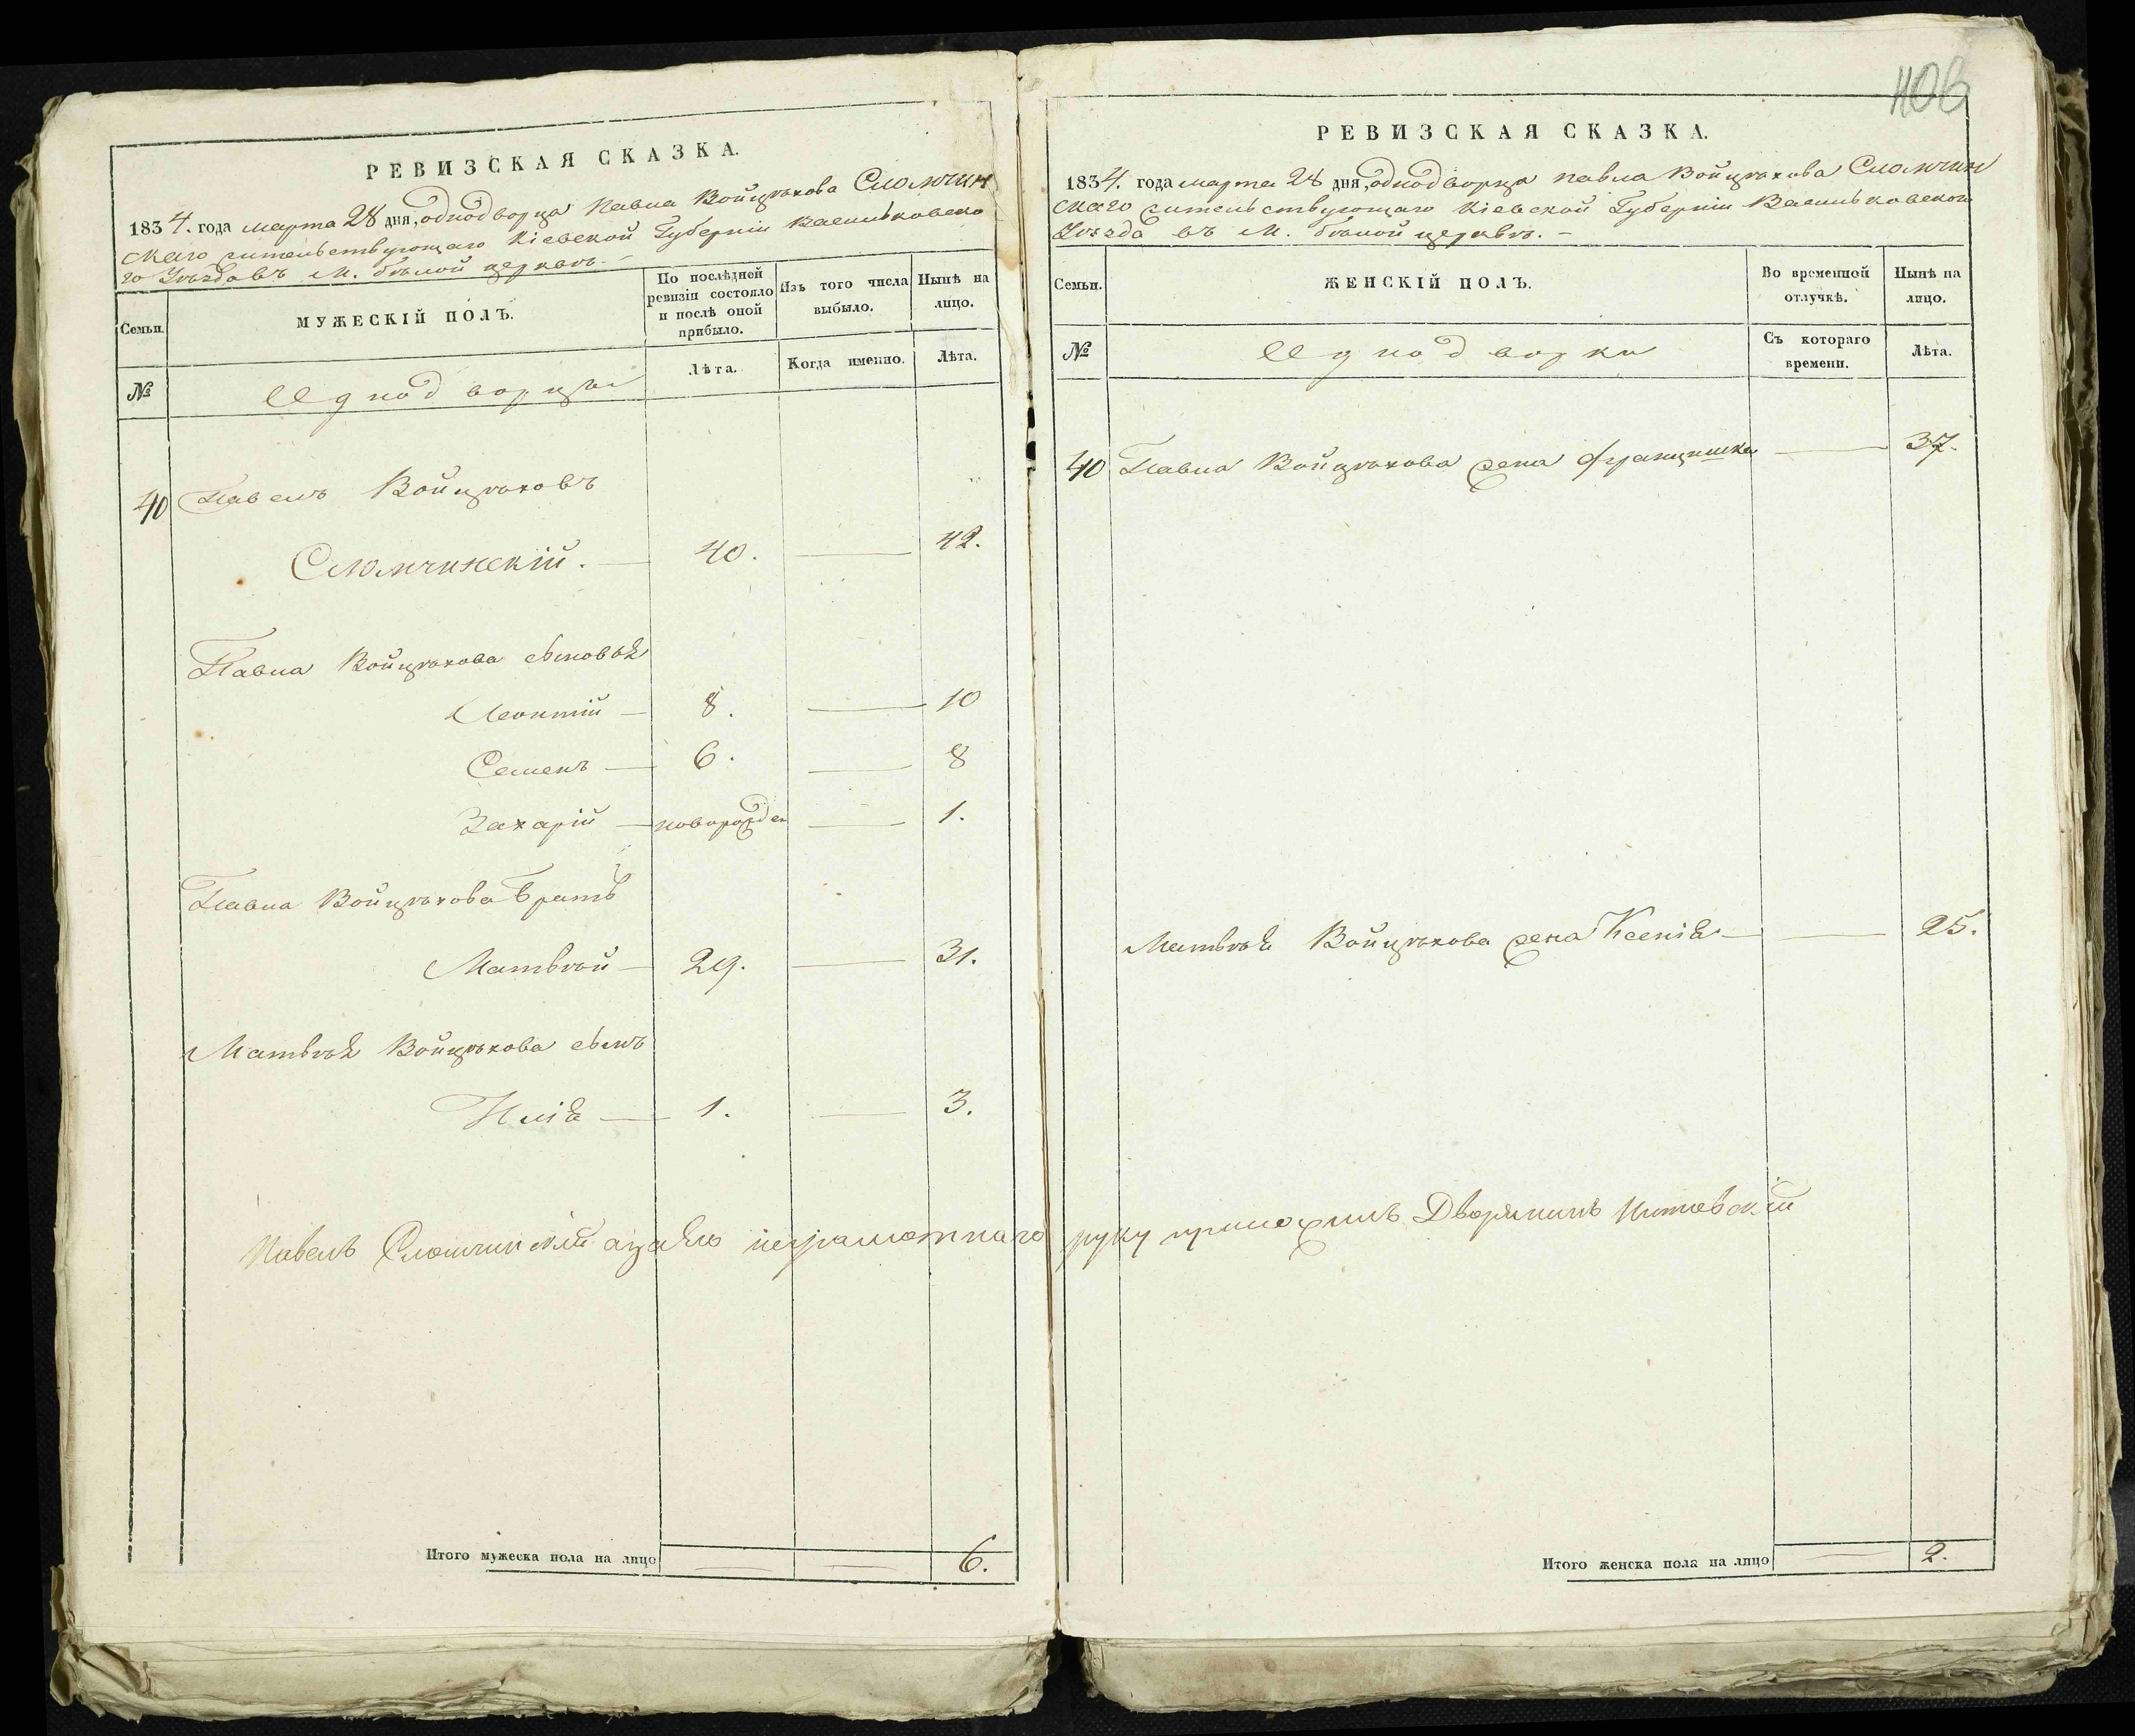 РЕВИЗСКАЯ СКАЗКА.
1834. года марта 28 дня, однодворца Павла Войцѣхова Сломчин
скаго жительствующаго Кіевской Губерніи Васильковска
го Уѣзда въ М. бѣлой церквѣ. –
Семьи.
МУЖЕСКІЙ ПОЛЪ.
По послѣдней ревизіи состояло и послѣ оной прибыло.
Изъ того числа выбыло.
Нынѣ на лицо.
№
Однодворцы
Лѣта.
Когда именно.
Лѣта.
40 Павелъ Войцѣховъ
Сломчинскій. — 40. — 42.
Павла Войцѣхова сыновья
Леонтій — 8. — 10
Семенъ — 6. — 8
Захарій — новорожден — 1.
Павла Войцѣхова Братъ
Матвѣй — 29. — 31.
Матвѣя Войцѣхова сынъ
Илія — 1. — 3.
Павелъ Сломчинскій а за Его неграмотнаго руку приложилъ Дворянинъ
Итого мужеска пола на лицо — — 6.
406
РЕВИЗСКАЯ СКАЗКА.
1834. года марта 28 дня, однодворца павла Войцѣхова Сломчин
скаго жительствующаго Кіевской Губерніи Васильковскаго
Уѣзда въ М. бѣлой церквѣ. –
Семьи.
ЖЕНСКІЙ ПОЛЪ.
Во временной отлучкѣ.
Нынѣ на лицо.
№
Однодворки
Съ котораго времени.
Лѣта.
40 Павла Войцѣхова жена Францишка — 37.
Матвѣя Войцѣхова жена Ксенія — — 25.
Итого женска пола на лицо — 2.